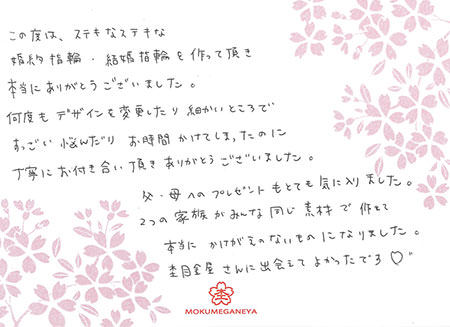 この度は、ステキなステキな
婚約指輪・結婚指輪を作って頂き
本当にありがとうございました。
何度もデザインを変更したり細かいところで
すっごい悩んだりお時間かけてしまったのに
丁寧にお付き合い頂きありがとうございました。
父・母へのプレゼントもとても気に入りました。
2つの家族がみんな同じ素材で作れて
本当にかけがえのないものになりました。
杢目金屋さんに出会えてよかったでる♡"
MOKUMEGANEYA